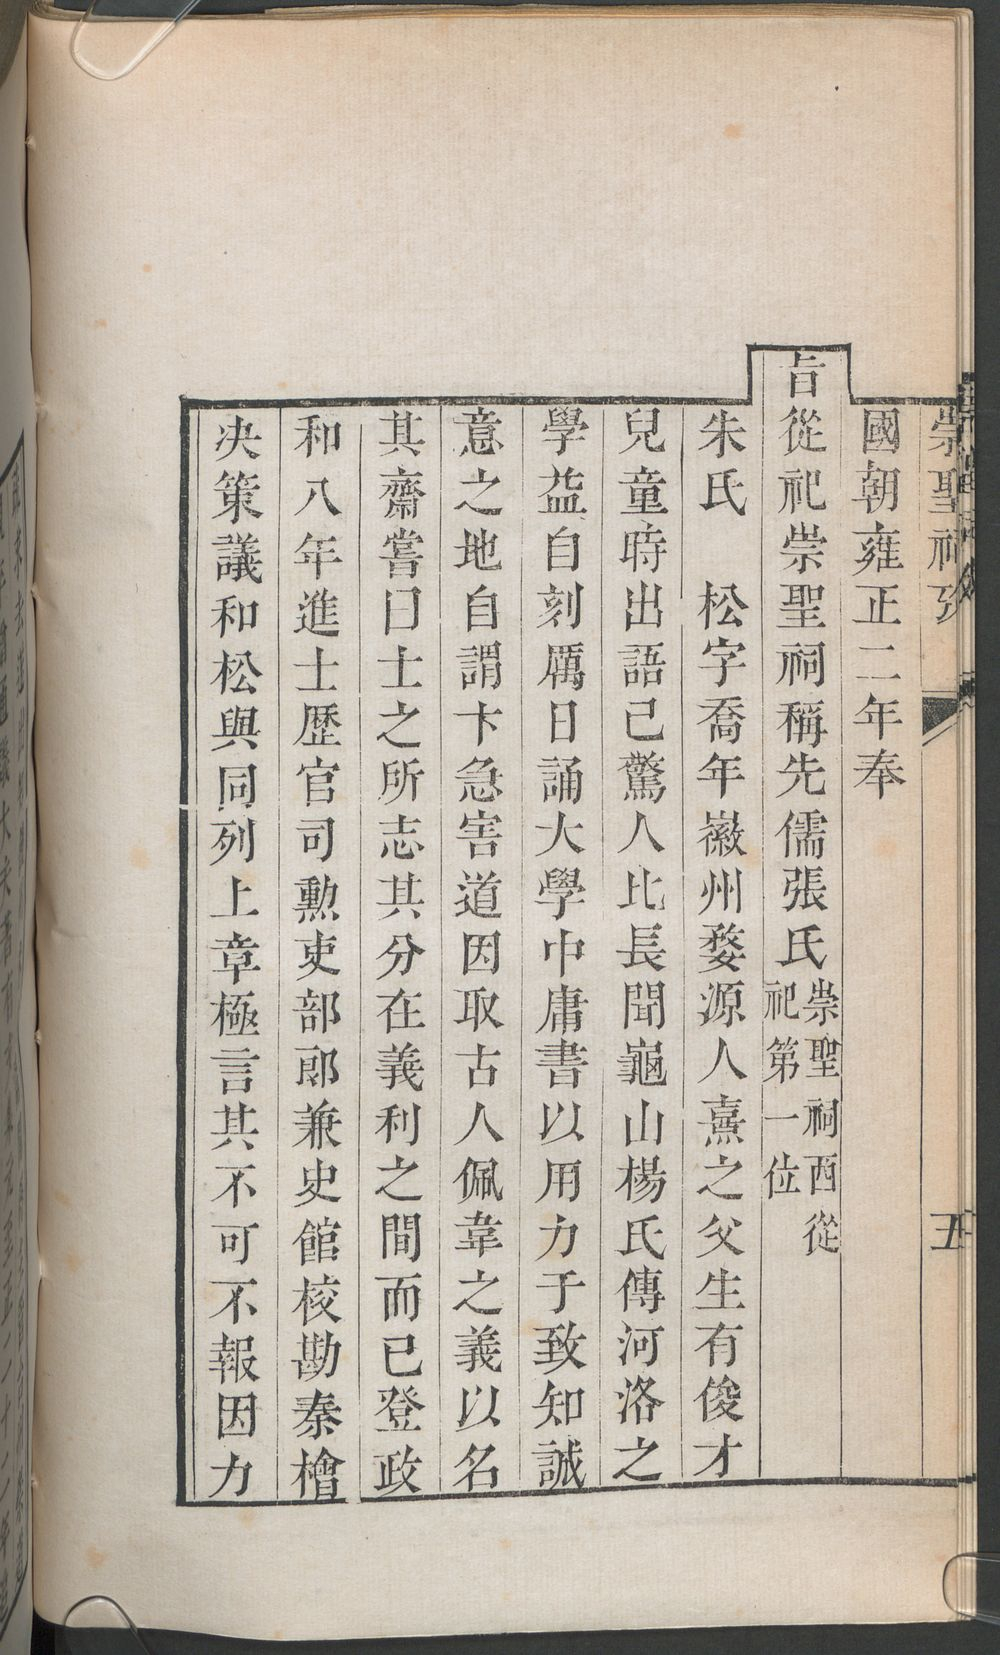 崇聖祠攷
五
國朝雍正二年奉
旨從祀崇聖祠稱先儒張氏崇聖祠西從
祀第一位
朱氏　松字喬年徽州婺源人熹之父生有俊才
兒童時出語已驚人比長聞龜山楊氏傳河洛之
學益自刻厲日誦大學中庸書以用力于致知誠
意之地自謂卞急害道因取古人佩韋之義以名
其齋嘗曰士之所志其分在義利之間而已登政
和八年進士歷官司勳吏部郎兼史館校勘秦檜
決策議和松與同列上章極言其不可不報因力